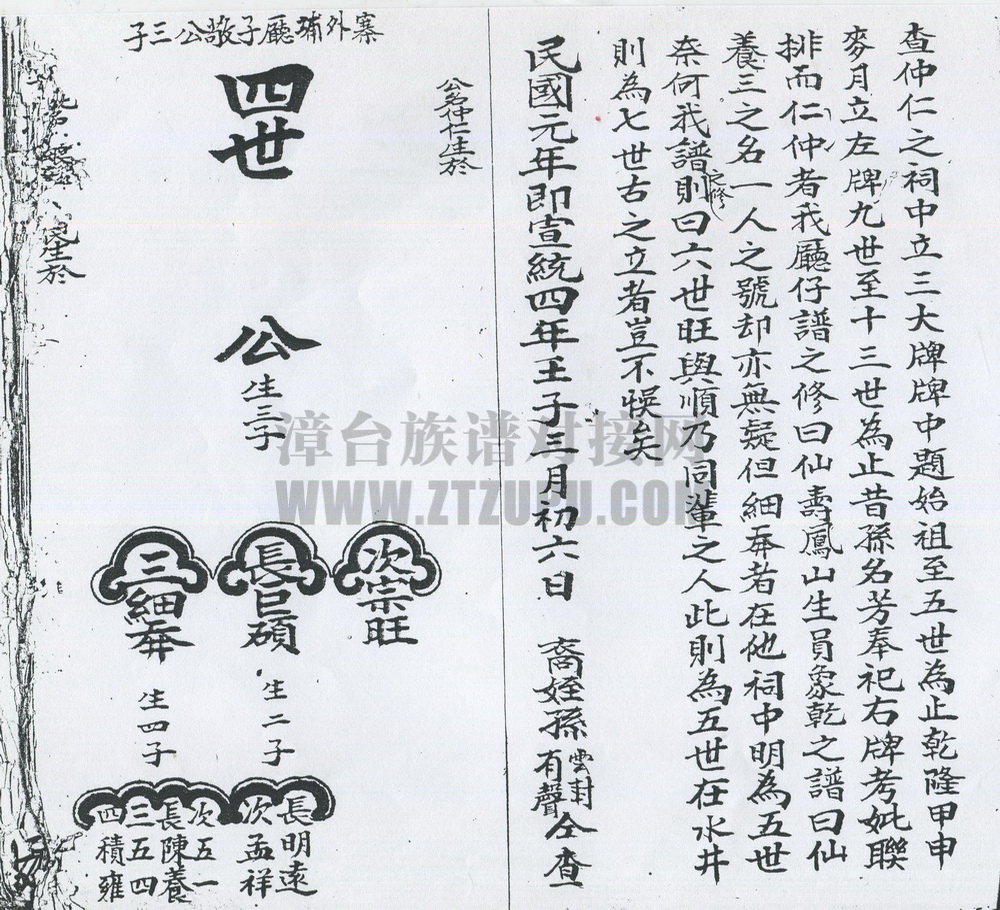 查仲仁之祠中立三大牌牌中題始祖至五世為止乾隆甲申
麥月立左牌九世至十三世為止昔孫名芳奉祀右牌考妣聯
排而仁仲者我廳仔譜之修曰仙壽鳳山生員象乾之譜曰仙
養三之名一人之號却亦無疑但細奔者在他祠中明為五世
奈何我譜之修則曰六世旺與順乃同輩之人此則為五世在水井
則為七世古之立者豈不悞矣
民國元年即宣統四年壬子三月初六日 裔姪孫雲封有聲仝查
公名仲仁生於
寨外埔廳子敬公三子
四世
公
生三子
次宗旺
長巨碩
生二子
三細奔
生四子
長明遠
次孟祥
次五一
長陳養
三五四
四積雍
生於
漳台族谱对接网
WWW.ZTZUPU.COM